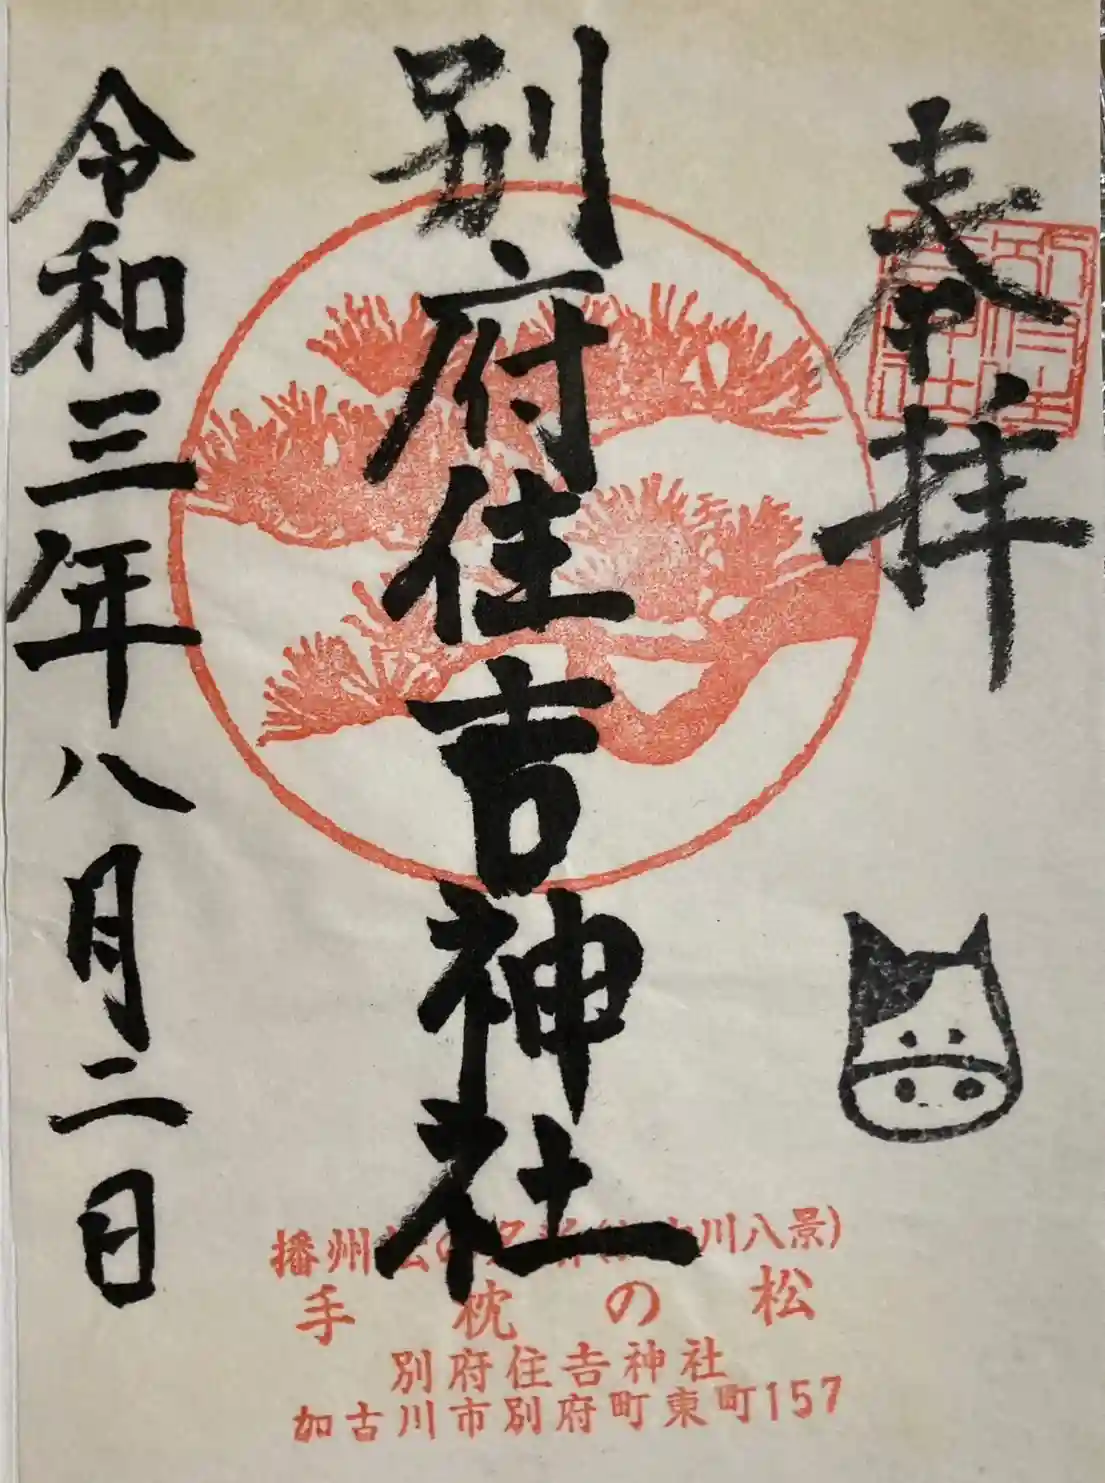 奉拝
別府住吉神社
令和三年八月二日
播州松の名所(加古川八景)
手枕の松
別府住吉神社
加古川市別府町東町157